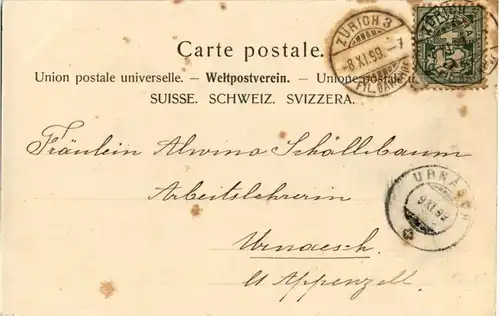 Carte postale.
Union postale universelle. — Weltpostverein. — Unione postale u
SUISSE. SCHWEIZ. SVIZZERA.
ZÜRICH 3
-8.XI.99.-7
FIL. BAHNHOF
ZÜRICH
5
Fräulein Alwina Schällebaum
Arbeitslehrerin
Urnaesch.
Ct Appenzell.
URNÄSCH
9.XI.99